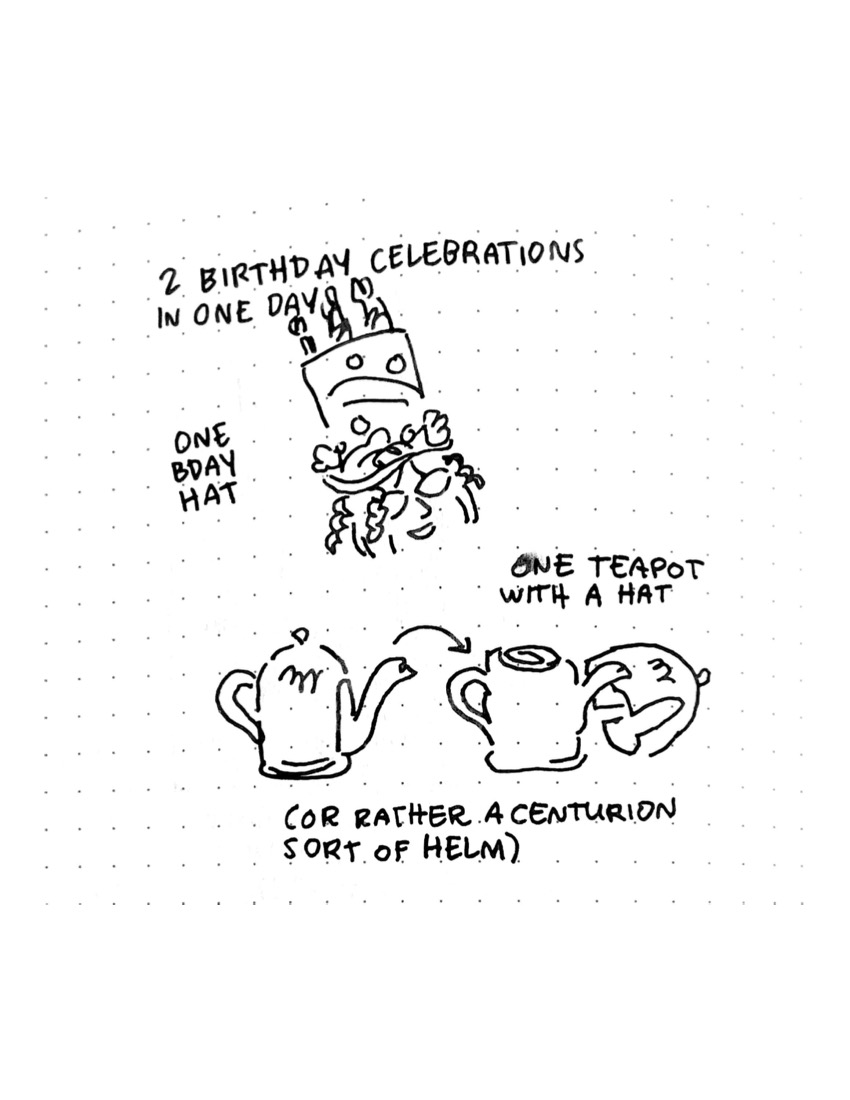 2 BIRTHDAY CELEBRATIONS
IN ONE DAY
ONE
BDAY
HAT
ONE TEAPOT
WITH A HAT
(OR RATHER A CENTURION
SORT OF HELM)